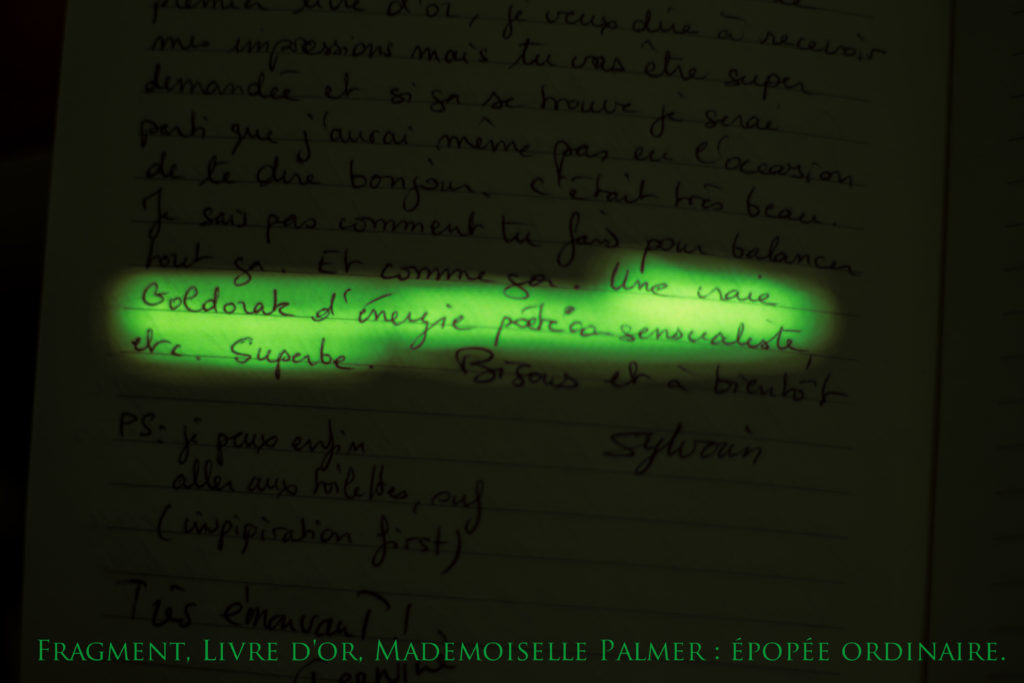 premier livre d'or, je veux dire à recevoir
mes impressions mais tu vas être super
demandée et si ça se trouve je serai
parti que j'aurai même pas eu l'occasion
de te dire bonjour. C'était très beau.
Je sais pas comment tu fais pour balancer
tout ça. Et comme ça. Une vraie
Goldorak d'énergie poético sensualiste,
etc. Superbe. Bisous et à bientôt
Sylvain
PS: je peux enfin
aller aux toilettes, ouf
(inspipiration first)
Très émouvant !
FRAGMENT, LIVRE D'OR, MADEMOISELLE PALMER : ÉPOPÉE ORDINAIRE.